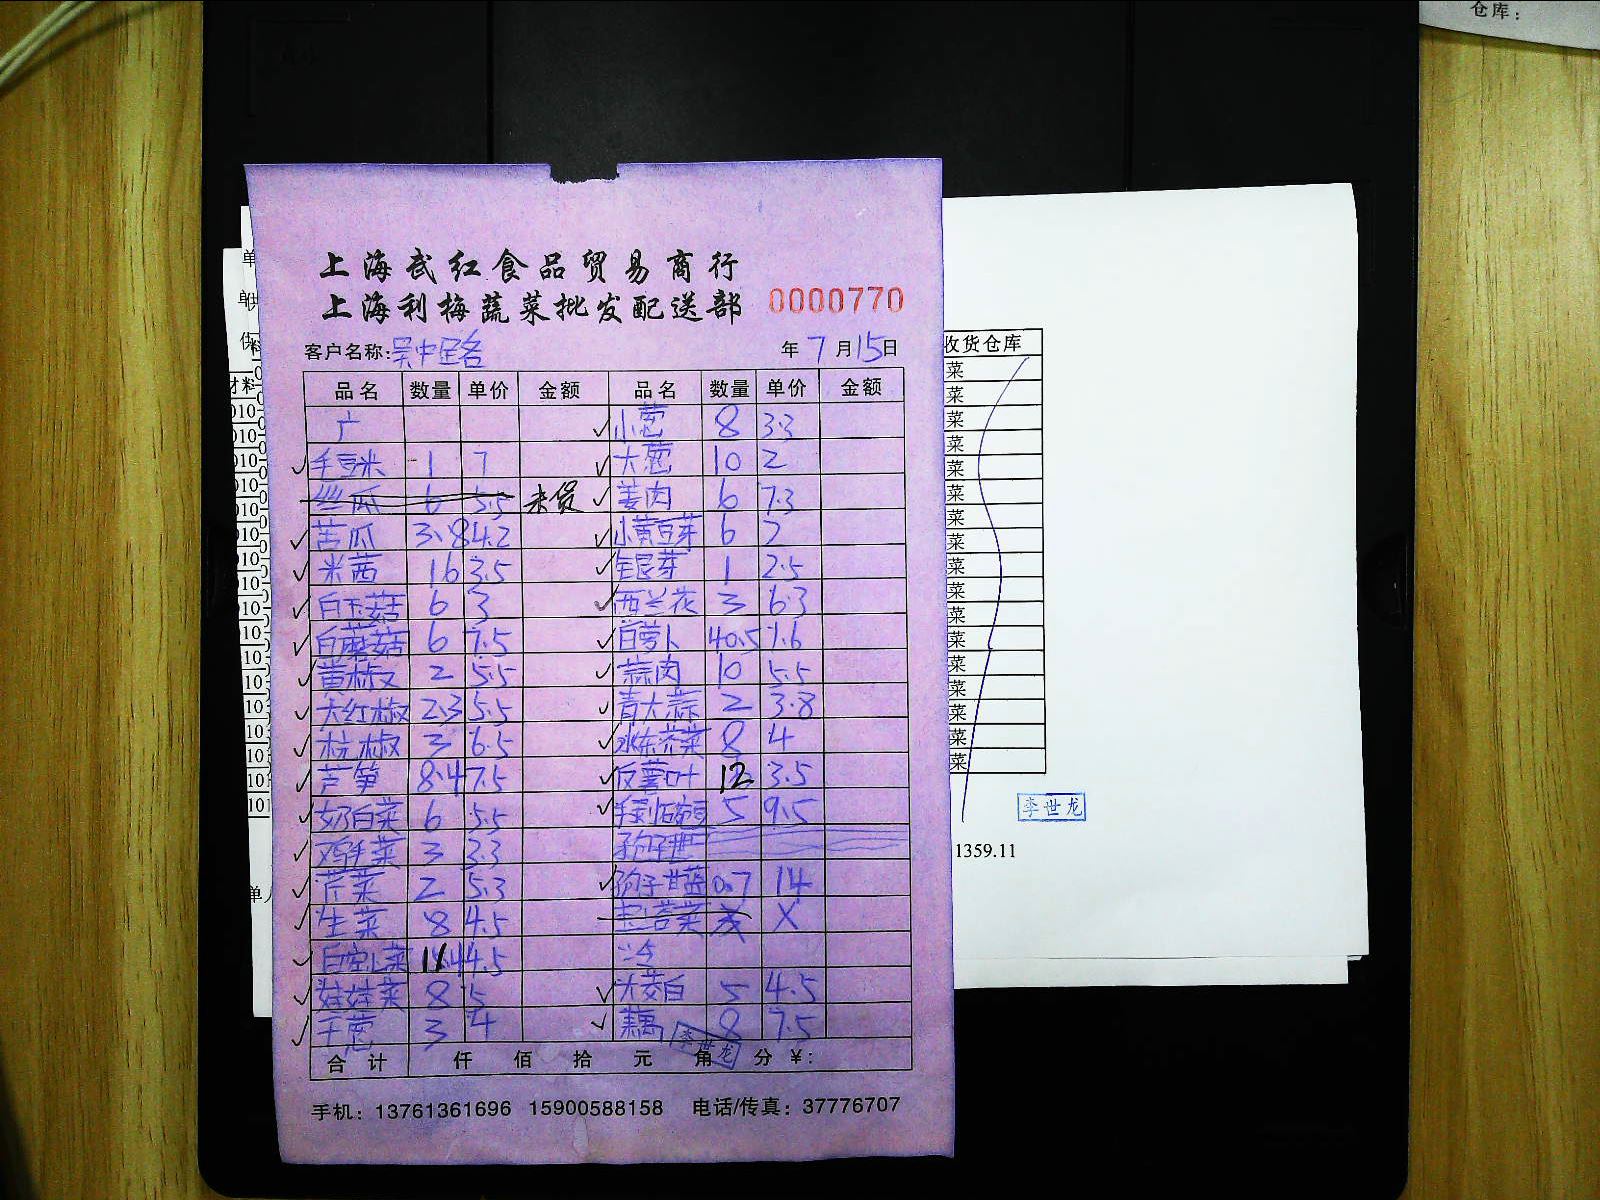 仓库：
上海武红食品贸易商行
上海利梅蔬菜批发配送部 0000770
客户名称:吴中路 年 7 月 15 日
品名 数量 单价 金额 品名 数量 单价 金额
广 小葱 8 3.3
毛豆米 1 7 大葱 10 2
丝瓜 6 5.5 未货 姜肉 6 7.3
苦瓜 3.8 4.2 小黄豆芽 6 2
米茜 16 3.5 银芽 1 2.5
白玉菇 6 3 西兰花 3 6.3
白蘑菇 6 7.5 白萝卜 40.5 1.6
黄椒 2 5.5 蒜肉 10 5.5
大红椒 2.3 5.5 青大蒜 2 3.8
杭椒 3 6.5 水东芥菜 8 4
芦笋 8.4 7.5 反薯叶 12 3.5
奶白菜 6 5.5 5 9.5
鸡毛菜 3 3.3
芹菜 2 5.3 孢子甘蓝 0.7 14
生菜 8 4.5 宝塔菜 X
白空心菜 4.5 冷
娃娃菜 8 5 大茭白 5 4.5
干葱 3 4 藕 8 7.5
李世龙
合计 仟 佰 拾 元 角 分 ¥:
手机：13761361696 15900588158 电话/传真：37776707
单
材料
收货仓库
菜
菜
菜
菜
菜
菜
菜
菜
菜
菜
菜
菜
菜
菜
菜
菜
菜
李世龙
1359.11